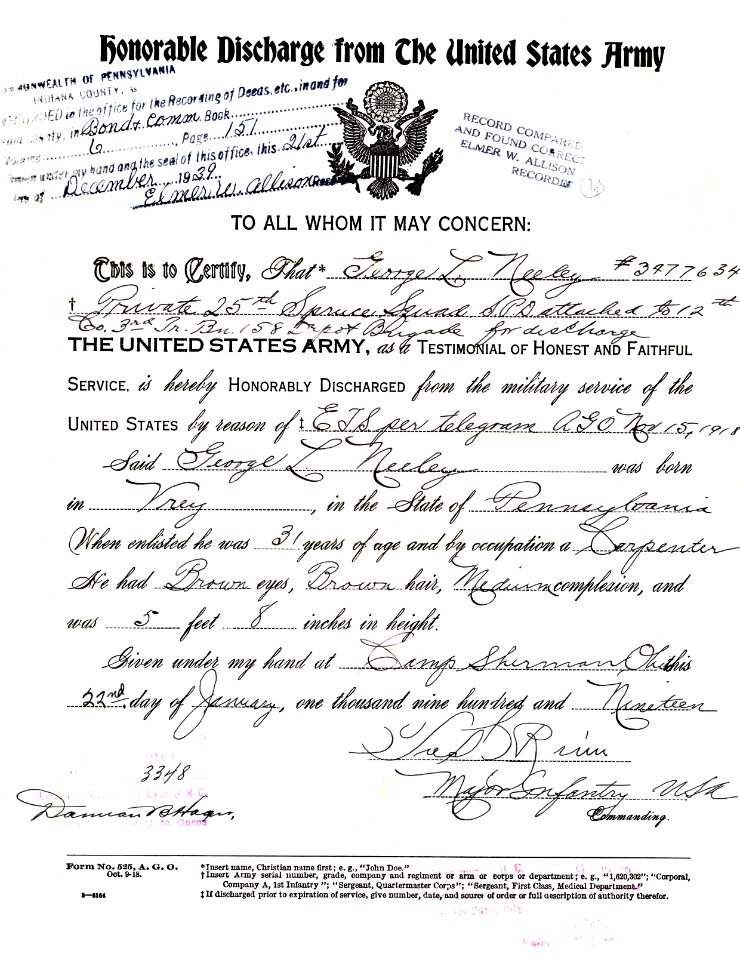 Honorable Discharge from The United States Army
COMMONWEALTH OF PENNSYLVANIA
INDIANA COUNTY,
in the office for the Recording of Deeds, etc., in and for
Bond & Comm Book
6, Page 151
under my hand and the seal of this office, this 21st
day of December 1939
Elmer W. Allison
RECORD COMPARED
AND FOUND CORRECT
ELMER W. ALLISON
RECORDER
TO ALL WHOM IT MAY CONCERN:
This is to Certify, That* George L. Neeley #3977634
† Private 25th Spruce Squad S.P.D attached to 12th
Co. 3rd Tr. Bn. 158 Depot Brigade for discharge
THE UNITED STATES ARMY, as a TESTIMONIAL OF HONEST AND FAITHFUL
SERVICE, is hereby HONORABLY DISCHARGED from the military service of the
UNITED STATES by reason of ‡ ETS per telegram AGO Nov 15, 1918
Said George L Neeley was born
in Vrey, in the State of Pennsylvania
When enlisted he was 31 years of age and by occupation a Carpenter
He had Brown eyes, Brown hair, Medium complexion, and
was 5 feet 8 inches in height.
Given under my hand at Camp Sherman, Ohio this
22nd day of January, one thousand nine hundred and Nineteen
Major Infantry USA
Commanding.
3348
Form No. 525, A. G. O.
Oct. 9-18.
3—6164
*Insert name, Christian name first; e. g., "John Doe."
†Insert Army serial number, grade, company and regiment or arm or corps or department; e. g., "1,620,302"; "Corporal,
Company A, 1st Infantry"; "Sergeant, Quartermaster Corps"; "Sergeant, First Class, Medical Department."
‡If discharged prior to expiration of service, give number, date, and source of order or full description of authority therefor.